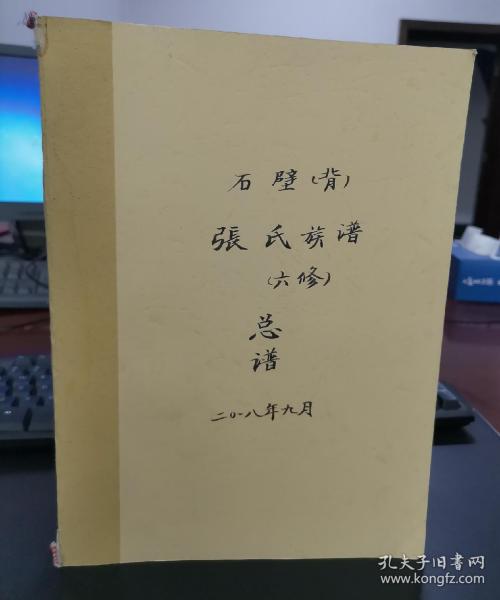 石壁(背)
張氏族谱
(六修)
总
谱
二〇一八年九月
孔夫子旧书网
www.kongfz.com